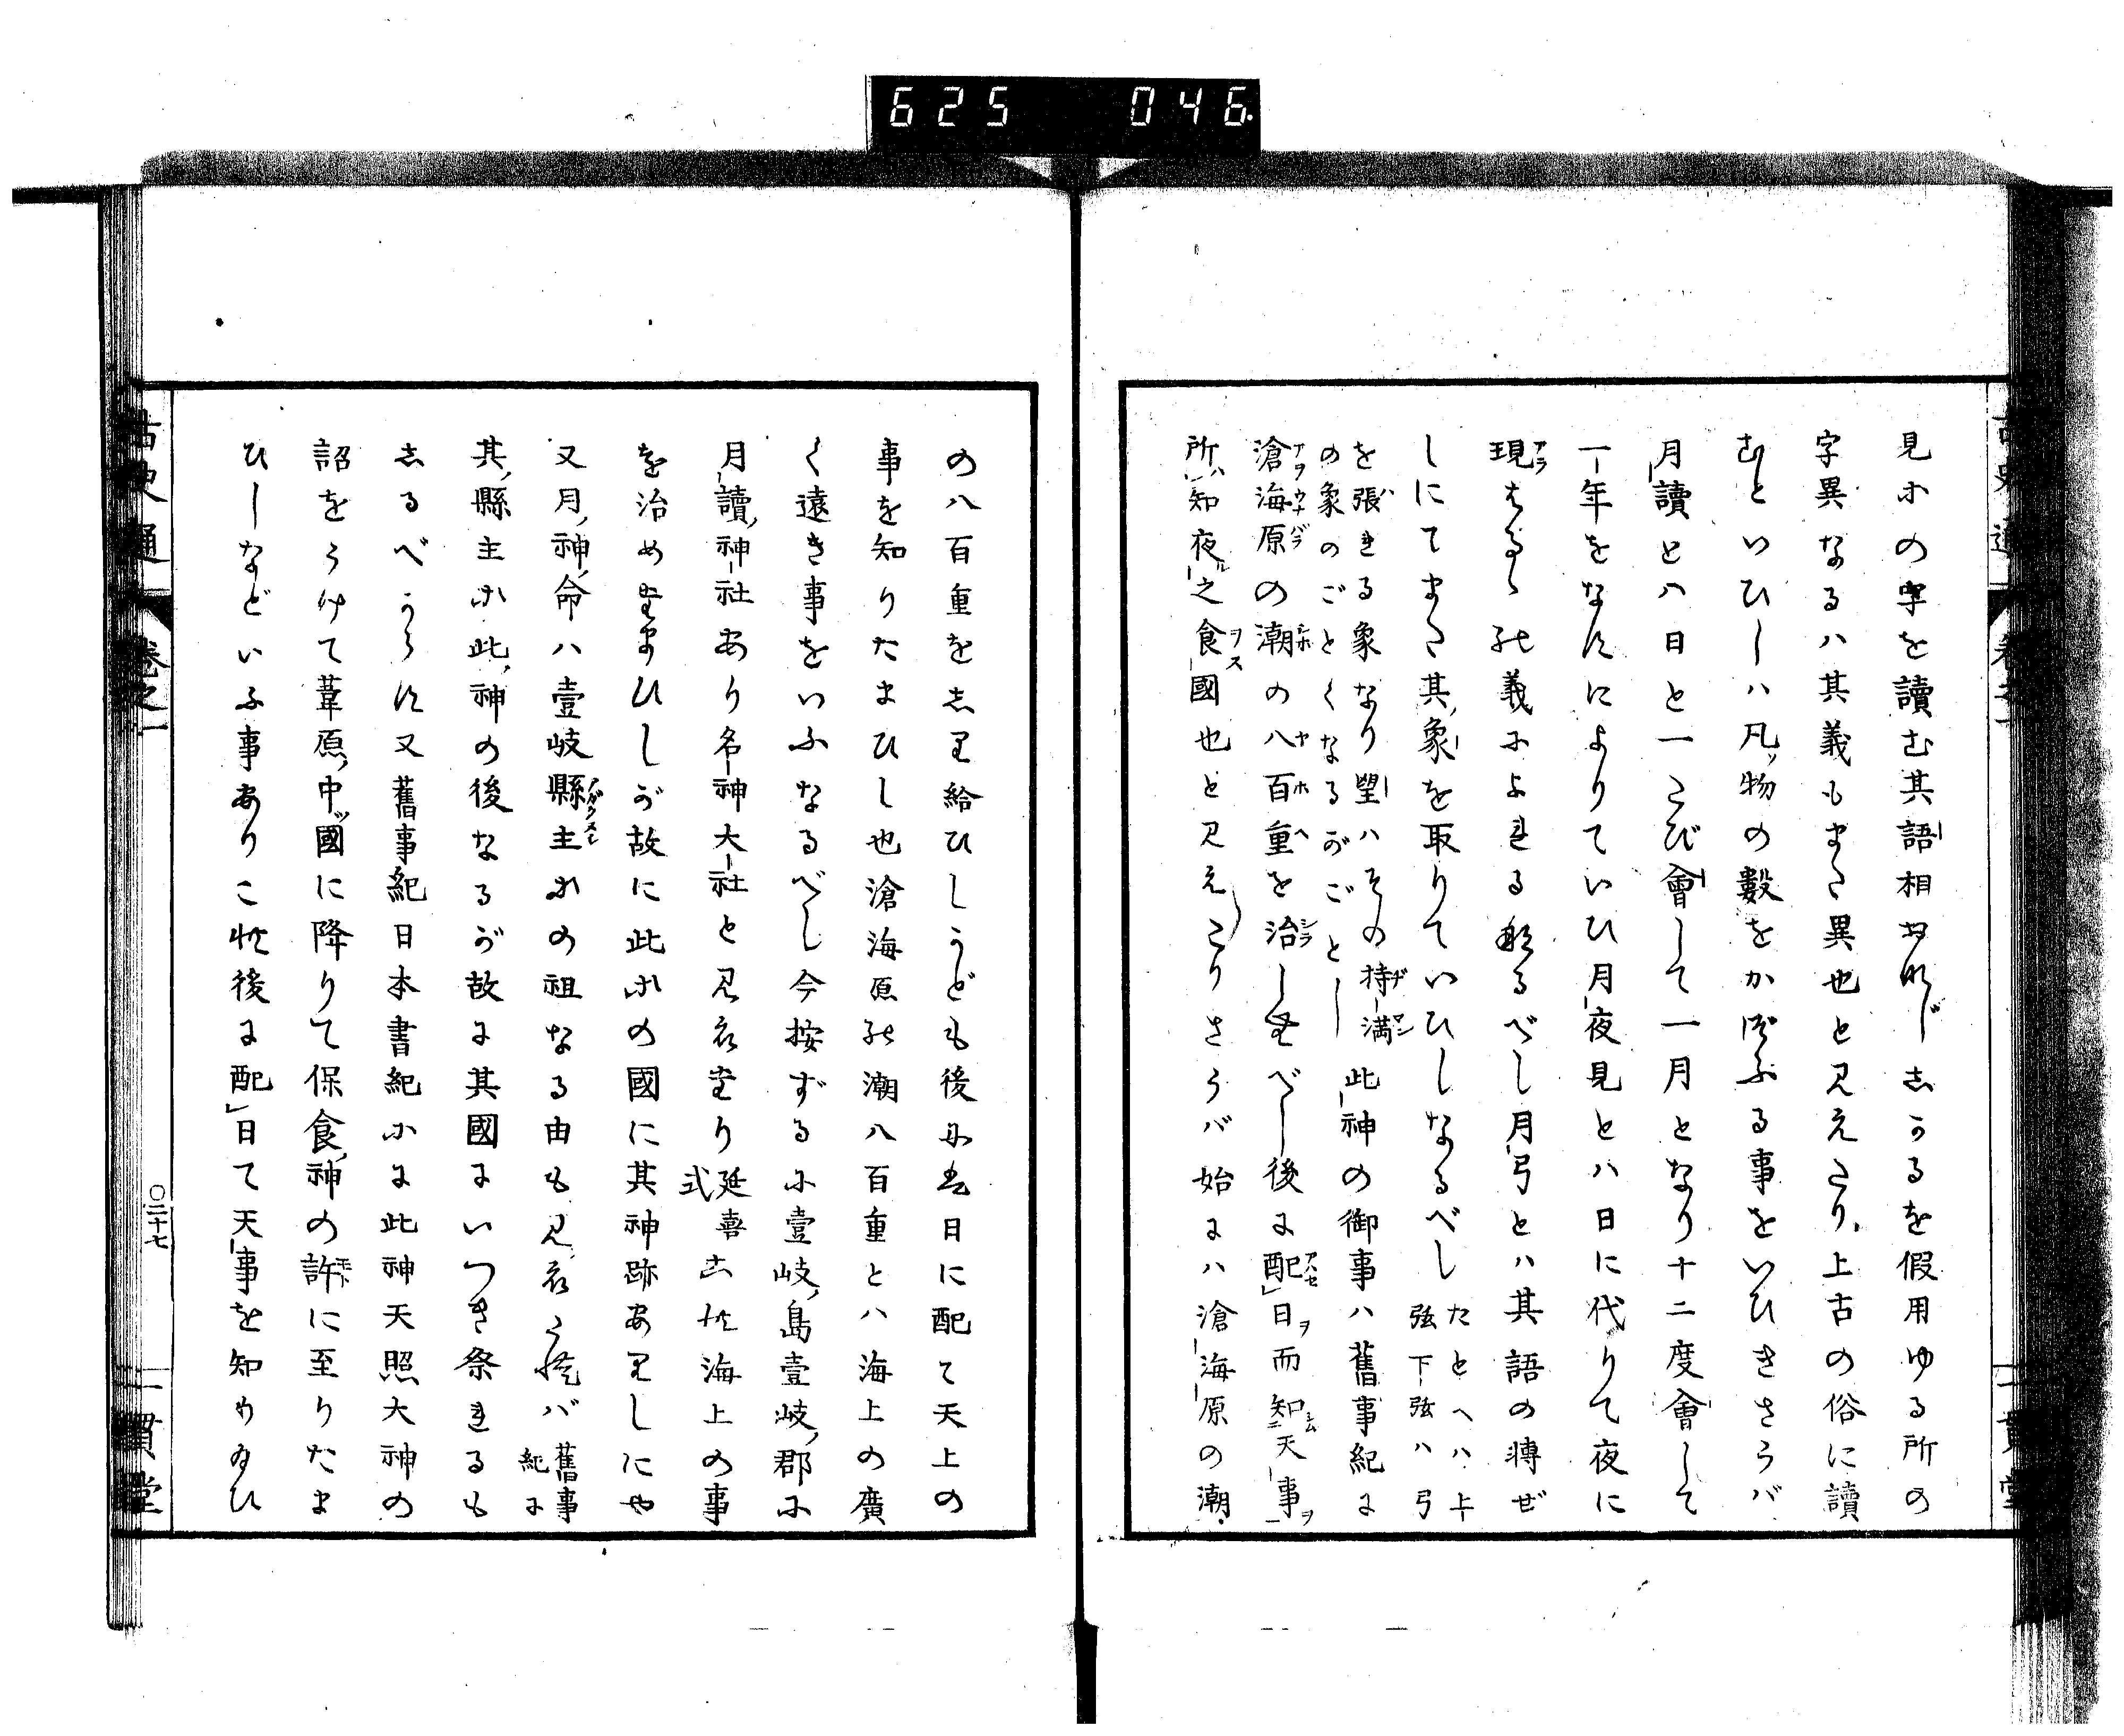 625 046
見ホの字を讀む其語相おなじしかるを假用ゆる所の
字異なるハ其義もまた異也と見えたり上古の俗に讀
むといひしハ凡ッ物の數をかぞふる事をいひきさらバ
月讀とハ日と一たび會して一月となり十二度會して
一年をなすによりていひ月夜見とハ日に代りて夜に
現はるゝの義によれるなるべし月弓とハ其語の轉ぜ
しにてまた其象を取りていひしなるべし たとへハ上弦下弦ハ弓
を張れる象なり望ハその持満の象のごとくなるがごとし 此神の御事ハ舊事紀に
滄海原の潮の八百重を治しむべし後に配日而知天事
所知夜之食國也と見えたりさらバ始にハ滄海原の潮
の八百重をしり給ひしかども後に日に配て天上の
事を知りたまひし也滄海原の潮八百重とハ海上の廣
く遠き事をいふなるべし今按ずるに壹岐島壹岐郡に
月讀神社あり名神大社と見えたり 延喜式 これ海上の事
を治めたまひしが故に此ホの國に其神跡ありしにや
又月神命ハ壹岐縣主ホの祖なる由も見えたれバ 舊事紀に
其縣主ホ此神の後なるが故に其國にいつき祭れるも
しるべからず又舊事紀日本書紀ホに此神天照大神の
詔をうけて葦原中ッ國に降りて保食神の許に至りたま
ひしなどいふ事ありこれ後に配日て天事を知めゐひ
古史通 卷之一 〇二十七 一貫堂